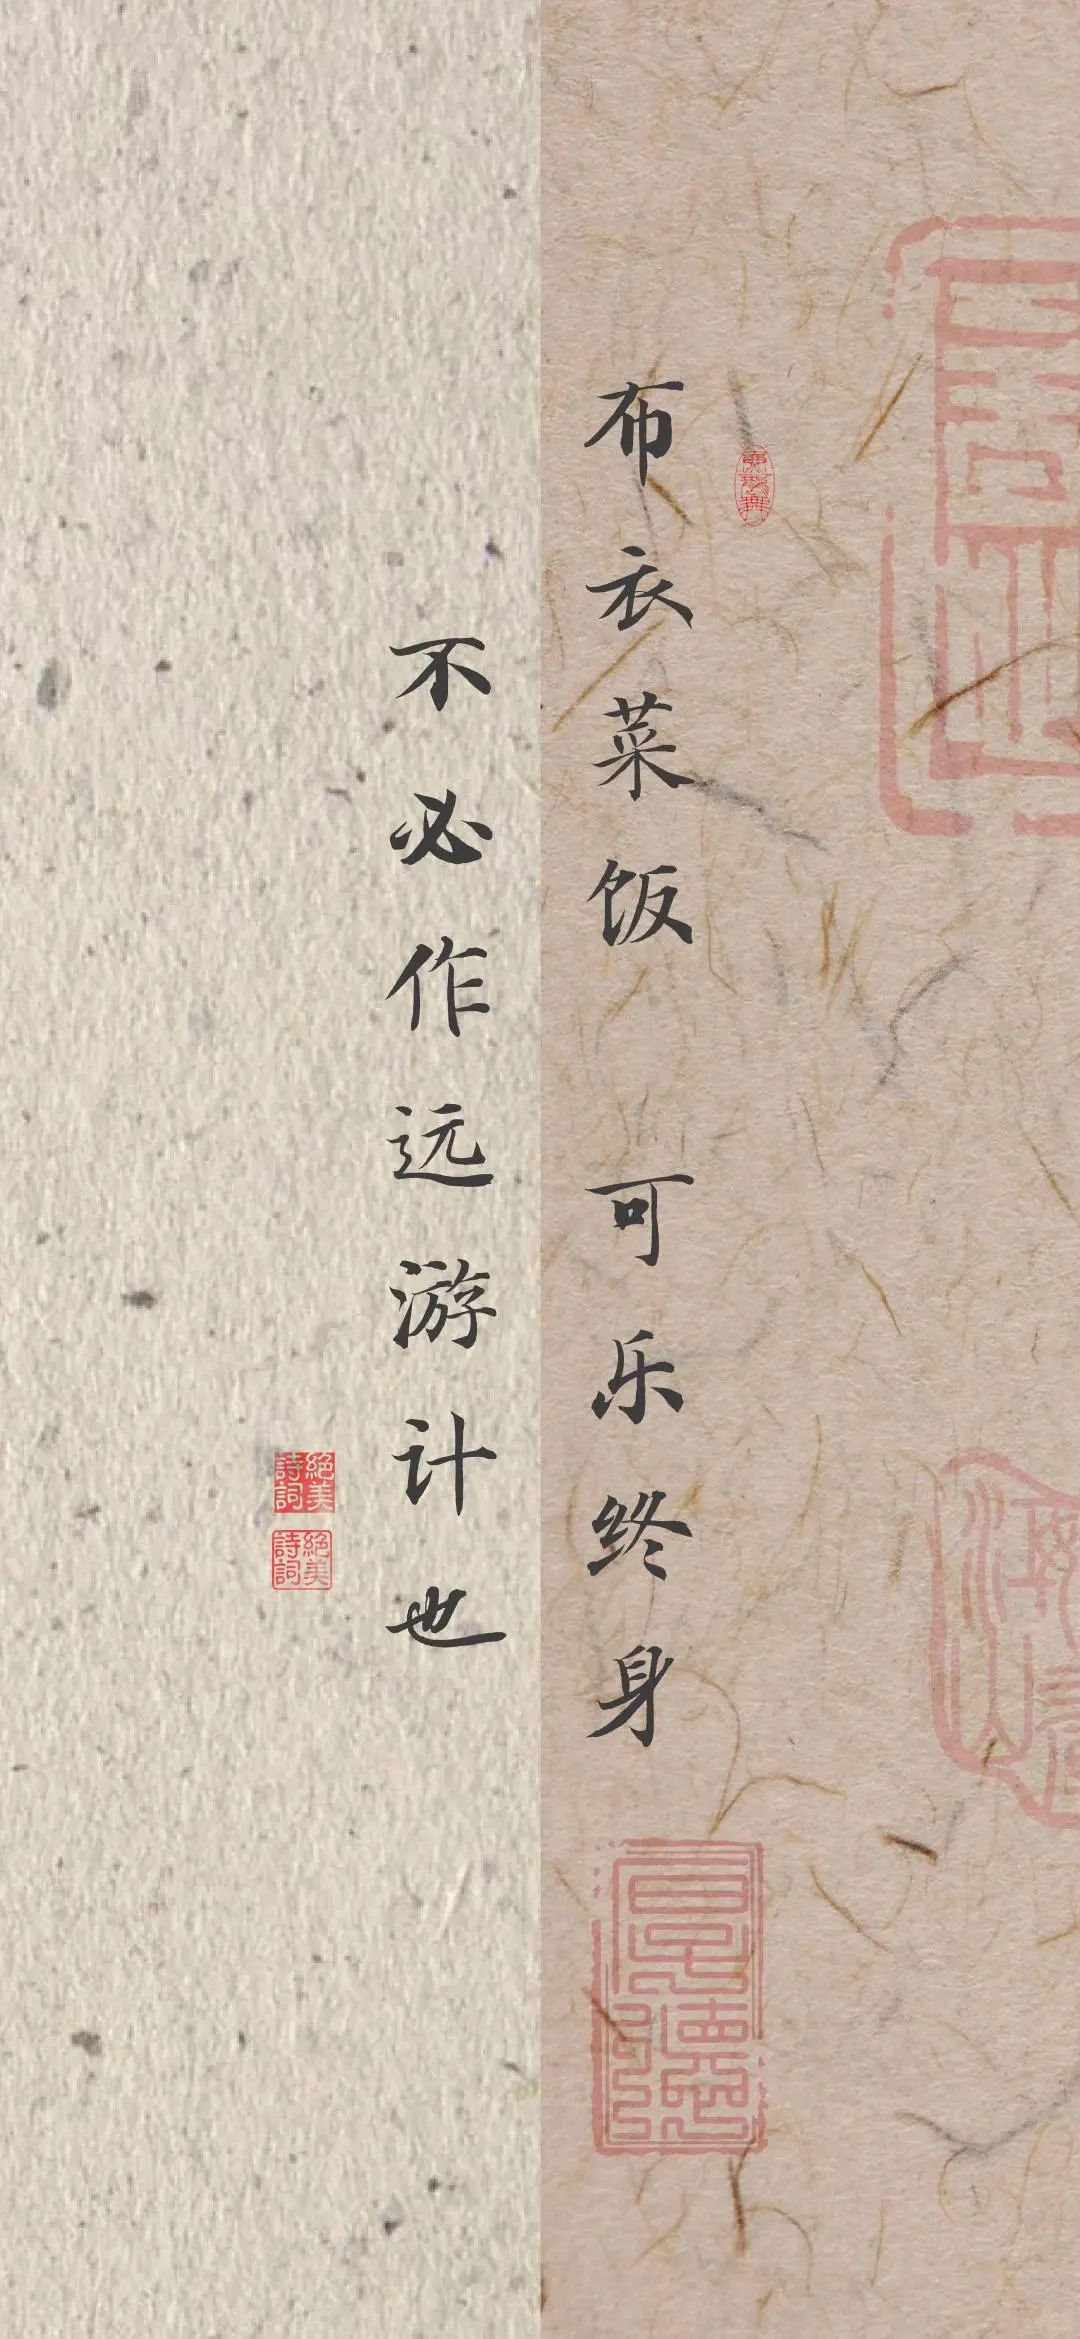 布衣菜饭 可乐终身
不必作远游计也
絕美詩詞
絕美詩詞